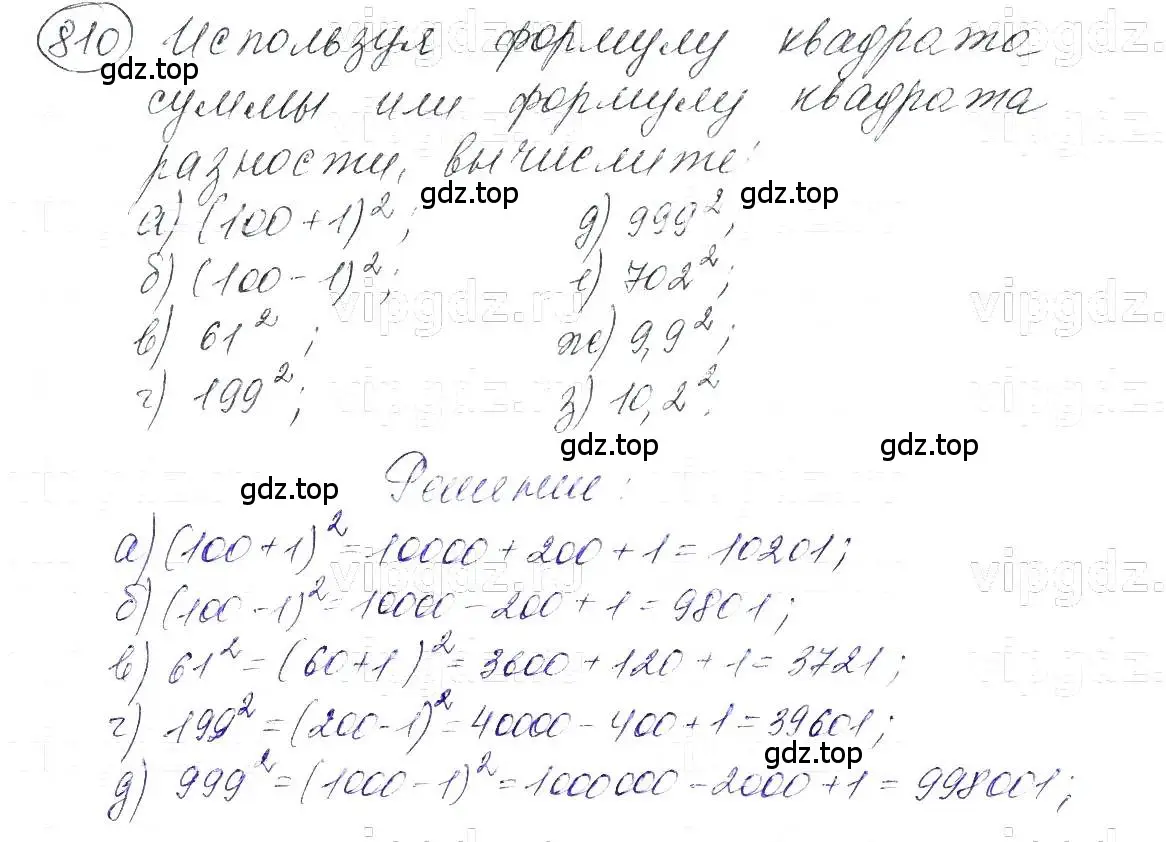 810 Используя формулу квадрата
gdz.top
суммы или формулу квадрата
разности, вычислите:
gdz.top gdz.top
а) (100 + 1)²; д) 999²;
б) (100 - 1)²; е) 702²;
vipgdz.ru vipgdz
в) 61²; ж) 9,9²;
г) 199²; з) 10,2².
gdz.top gdz.top
gdz.top Решение:
а) (100 + 1)² = 10000 + 200 + 1 = 10201;
б) (100 - 1)² = 10000 - 200 + 1 = 9801;
в) 61² = (60 + 1)² = 3600 + 120 + 1 = 3721;
г) 199² = (200 - 1)² = 40000 - 400 + 1 = 39601;
gdz.top
д) 999² = (1000 - 1)² = 1000000 - 2000 + 1 = 998001;